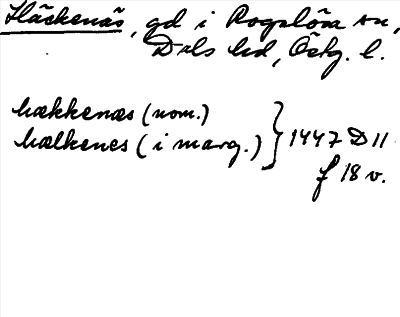 Häckenäs, gd i Rogslösa sn,
Dals hd, Östg. l.
hækkenæs (nom.)
hælkenes (i marg.) } 1447 D 11
f 18 v.